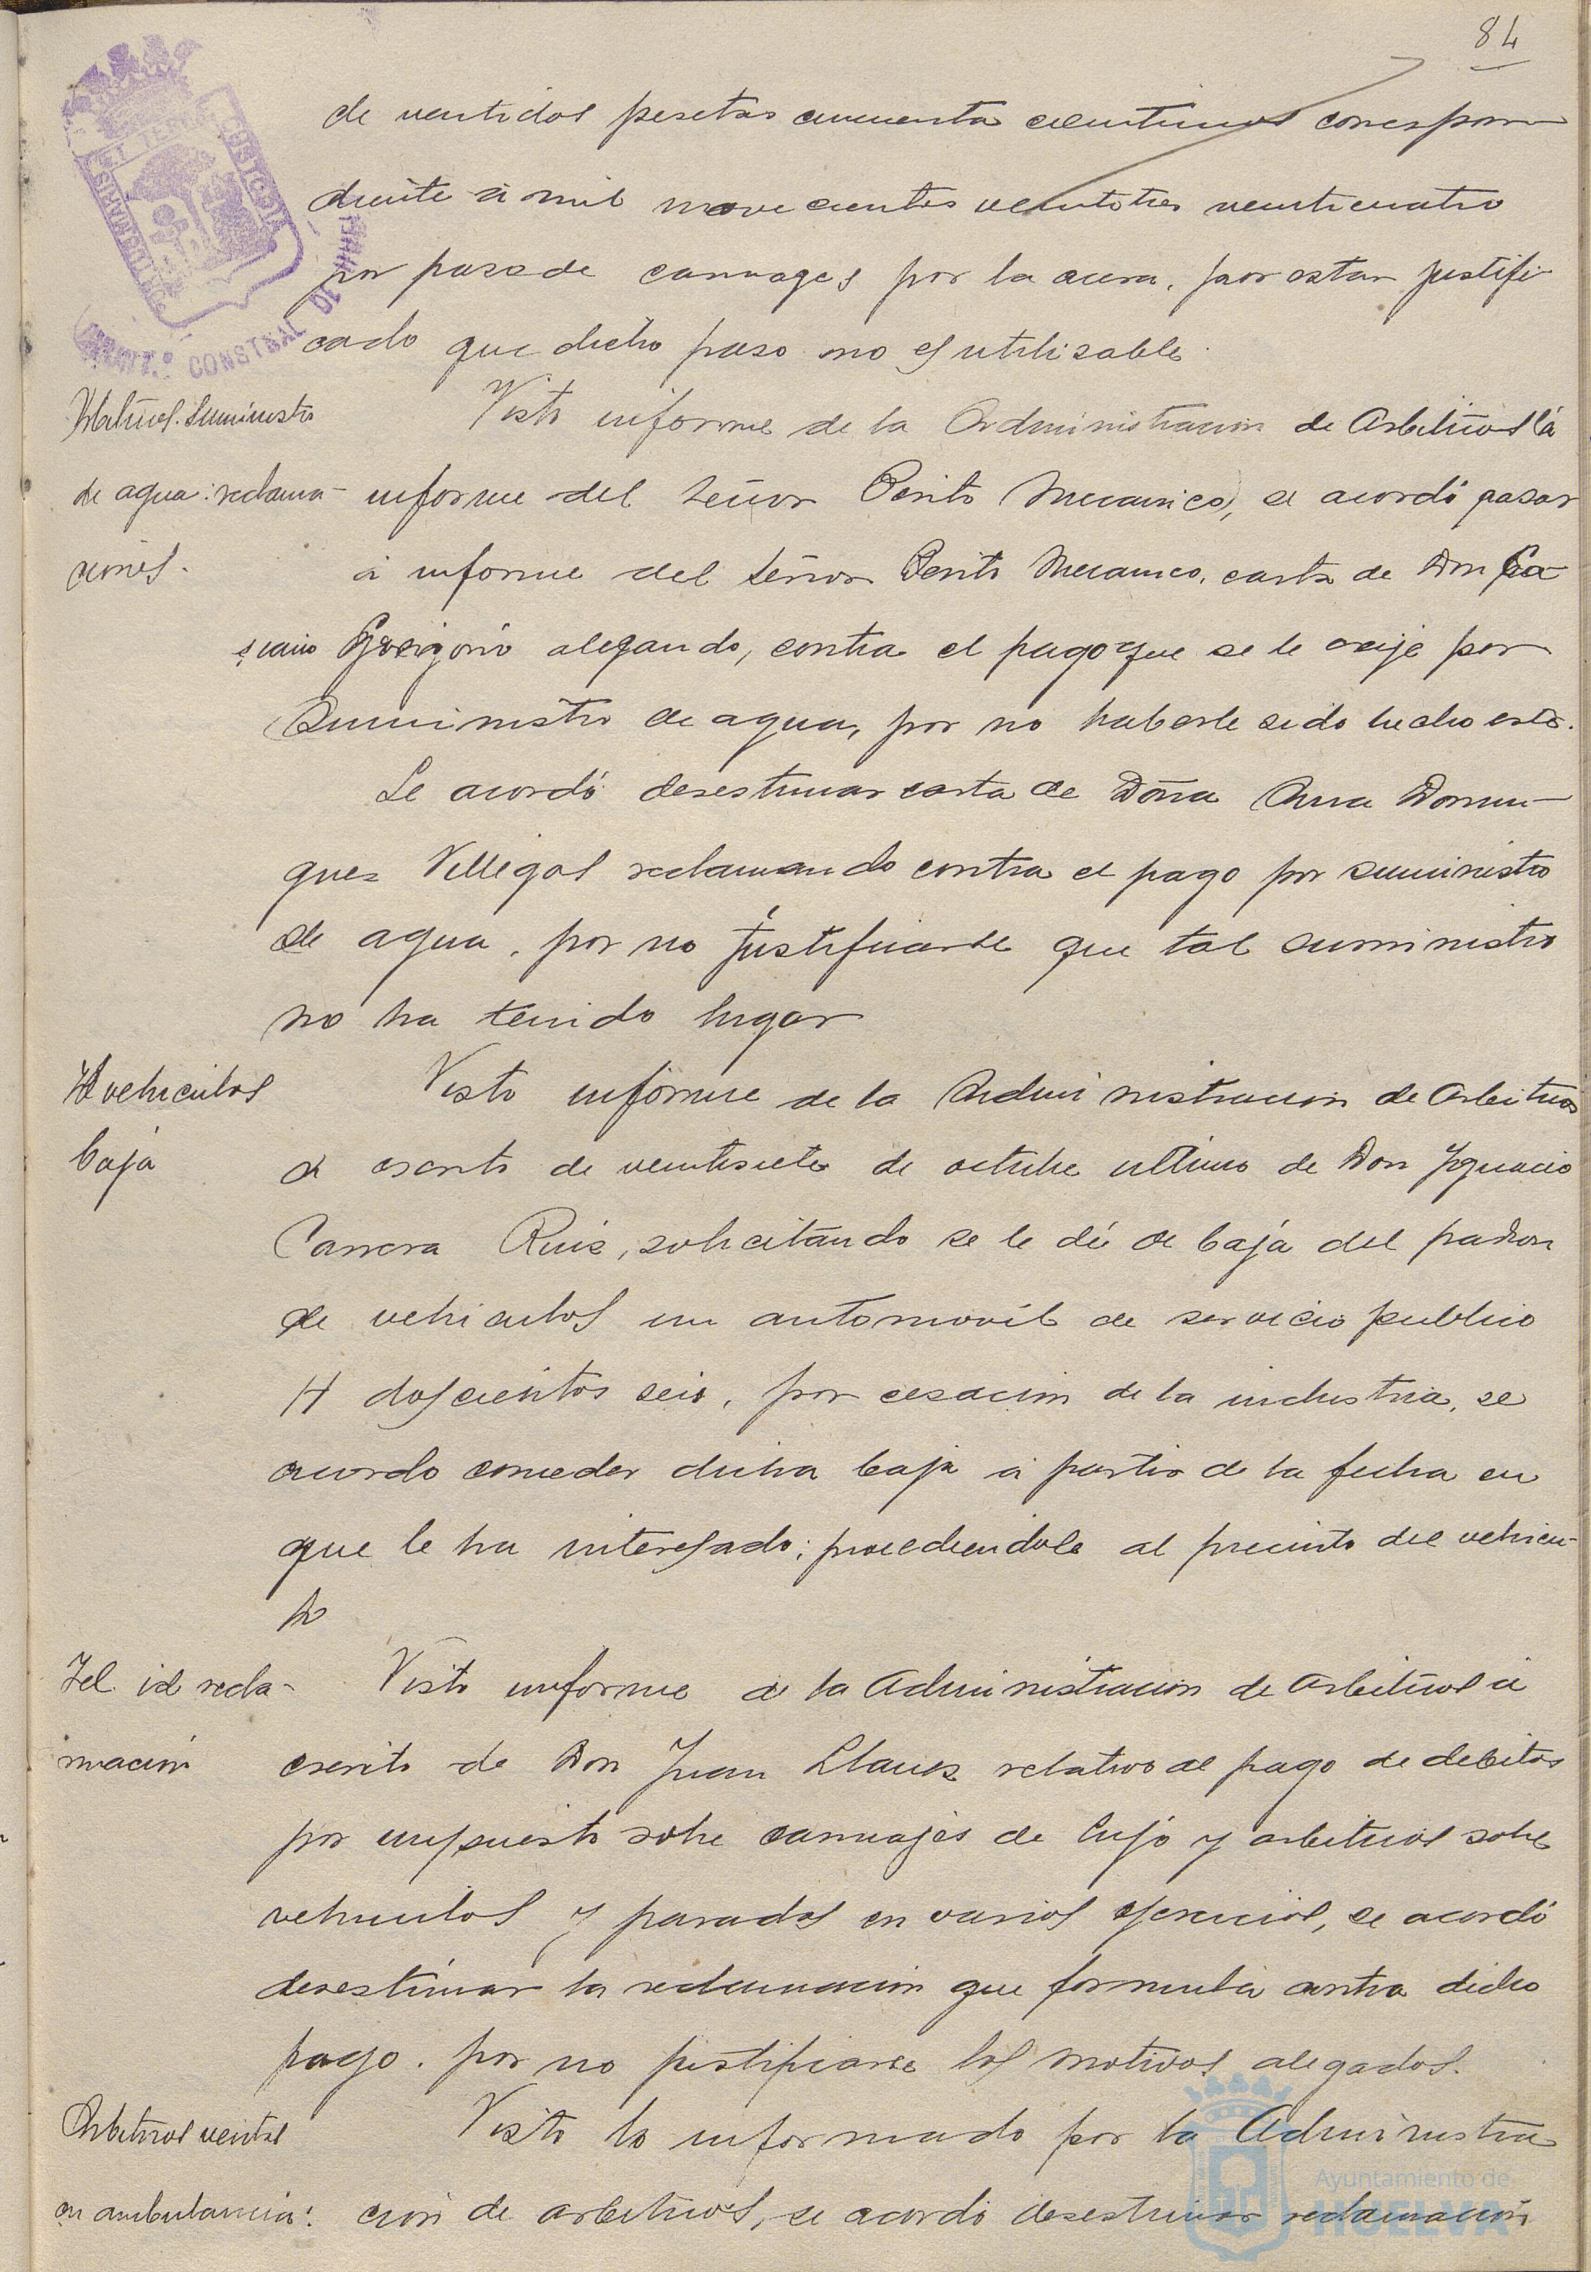 84
de ventidos pesetas cincuenta centimos correspon
diente a mil novecientos veintitres veinticuatro
por paso de carruages por la acera, por estar justifi-
cado que dicho paso no es utilizable.
Suministro
de agua: reclama-
ciones.
Visto informe de la Administracion de Arbitrios á
informe del señor Perito Mecanico, se acordó pasar
á informe del señor Perito Mecanico, carta de Don Ca-
siano Gorigorio alegando, contra el pago que se le exije por
Suministro de agua, por no haberle sido hecho este.
Se acordó desestimar carta de Doña Ana Domin-
guez Villegas reclamando contra el pago por suministro
de agua, por no justificarse que tal suministro
no ha tenido lugar
vehiculos
baja
Visto informe de la Administracion de Arbitrios
á escrito de veintisiete de octubre ultimo de Don Ignacio
Carrera Ruiz, solicitando se le dé de baja del padron
de vehiculos un automovil de servicio publico
H doscientos seis, por cesacion de la industria, se
acordo conceder dicha baja á partir de la fecha en
que le ha interesado; procediendole al precinto del vehicu-
lo
Id. id recla-
macion
Visto informe de la Administracion de Arbitrios á
escrito de Don Juan Llanes relativo al pago de debitos
por impuesto sobre carruajes de lujo y arbitrios sobre
vehiculos y paradas en varios ejercicios, se acordó
desestimar la reclamacion que formula contra dicho
pago. por no justificarse los motivos alegados.
Arbitrios ventas
en ambulancia:
Visto lo informado por la Administra
cion de arbitrios, se acordó desestimar reclamación
Ayuntamiento de
HUELVA